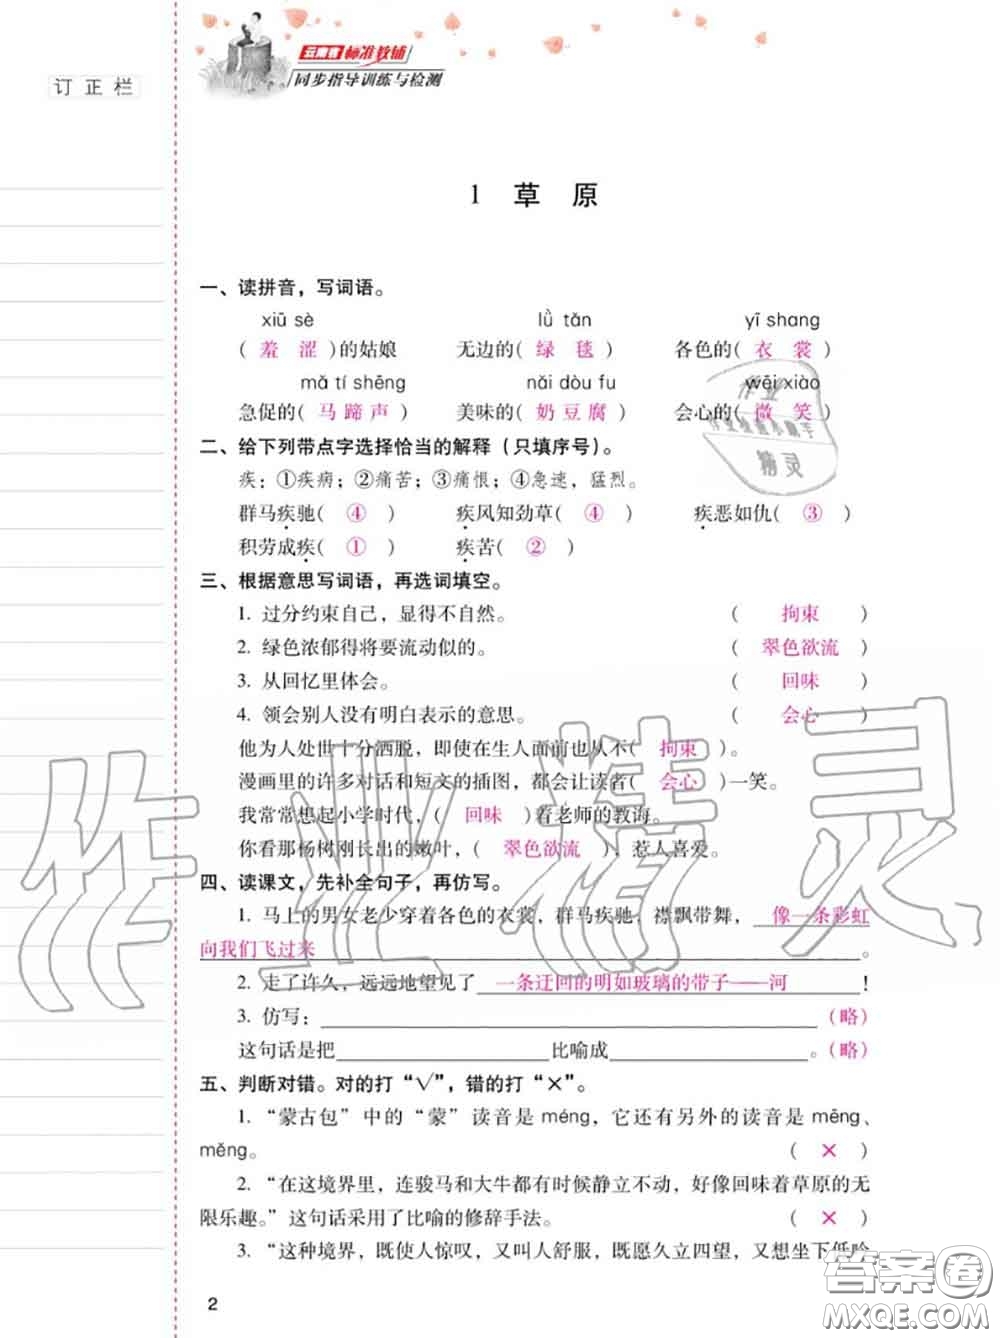 云南省标准教辅
同步指导训练与检测
订正栏
1 草 原
一、读拼音，写词语。
xiū sè lǜ tǎn yī shang
( 羞 涩 )的姑娘 无边的( 绿 毯 ) 各色的( 衣 裳 )
mǎ tí shēng nǎi dòu fu wēi xiào
急促的( 马 蹄 声 ) 美味的( 奶 豆 腐 ) 会心的( 微 笑 )
二、给下列带点字选择恰当的解释（只填序号）。
疾：①疾病；②痛苦；③痛恨；④急速，猛烈。
群马疾驰( ④ ) 疾风知劲草( ④ ) 疾恶如仇( ③ )
积劳成疾( ① ) 疾苦( ② )
三、根据意思写词语，再选词填空。
1. 过分约束自己，显得不自然。 ( 拘束 )
2. 绿色浓郁得将要流动似的。 ( 翠色欲流 )
3. 从回忆里体会。 ( 回味 )
4. 领会别人没有明白表示的意思。 ( 会心 )
他为人处世十分洒脱，即使在生人面前也从不( 拘束 )。
漫画里的许多对话和短文的插图，都会让读者( 会心 )一笑。
我常常想起小学时代，( 回味 )着老师的教诲。
你看那杨树刚长出的嫩叶，( 翠色欲流 )，惹人喜爱。
四、读课文，先补全句子，再仿写。
1. 马上的男女老少穿着各色的衣裳，群马疾驰，襟飘带舞，像一条彩虹
向我们飞过来。
2. 走了许久，远远地望见了一条迂回的明如玻璃的带子——河！
3. 仿写：（略）
这句话是把 比喻成 。（略）
五、判断对错。对的打“√”，错的打“×”。
1. “蒙古包”中的“蒙”读音是 méng，它还有另外的读音是 mēng、
měng。 ( × )
2. “在这境界里，连骏马和大牛都有时候静立不动，好像回味着草原的无
限乐趣。”这句话采用了比喻的修辞手法。 ( × )
3. “这种境界，既使人惊叹，又叫人舒服，既愿久立四望，又想坐下低吟
2
作业精灵
答案圈
MXQE.COM